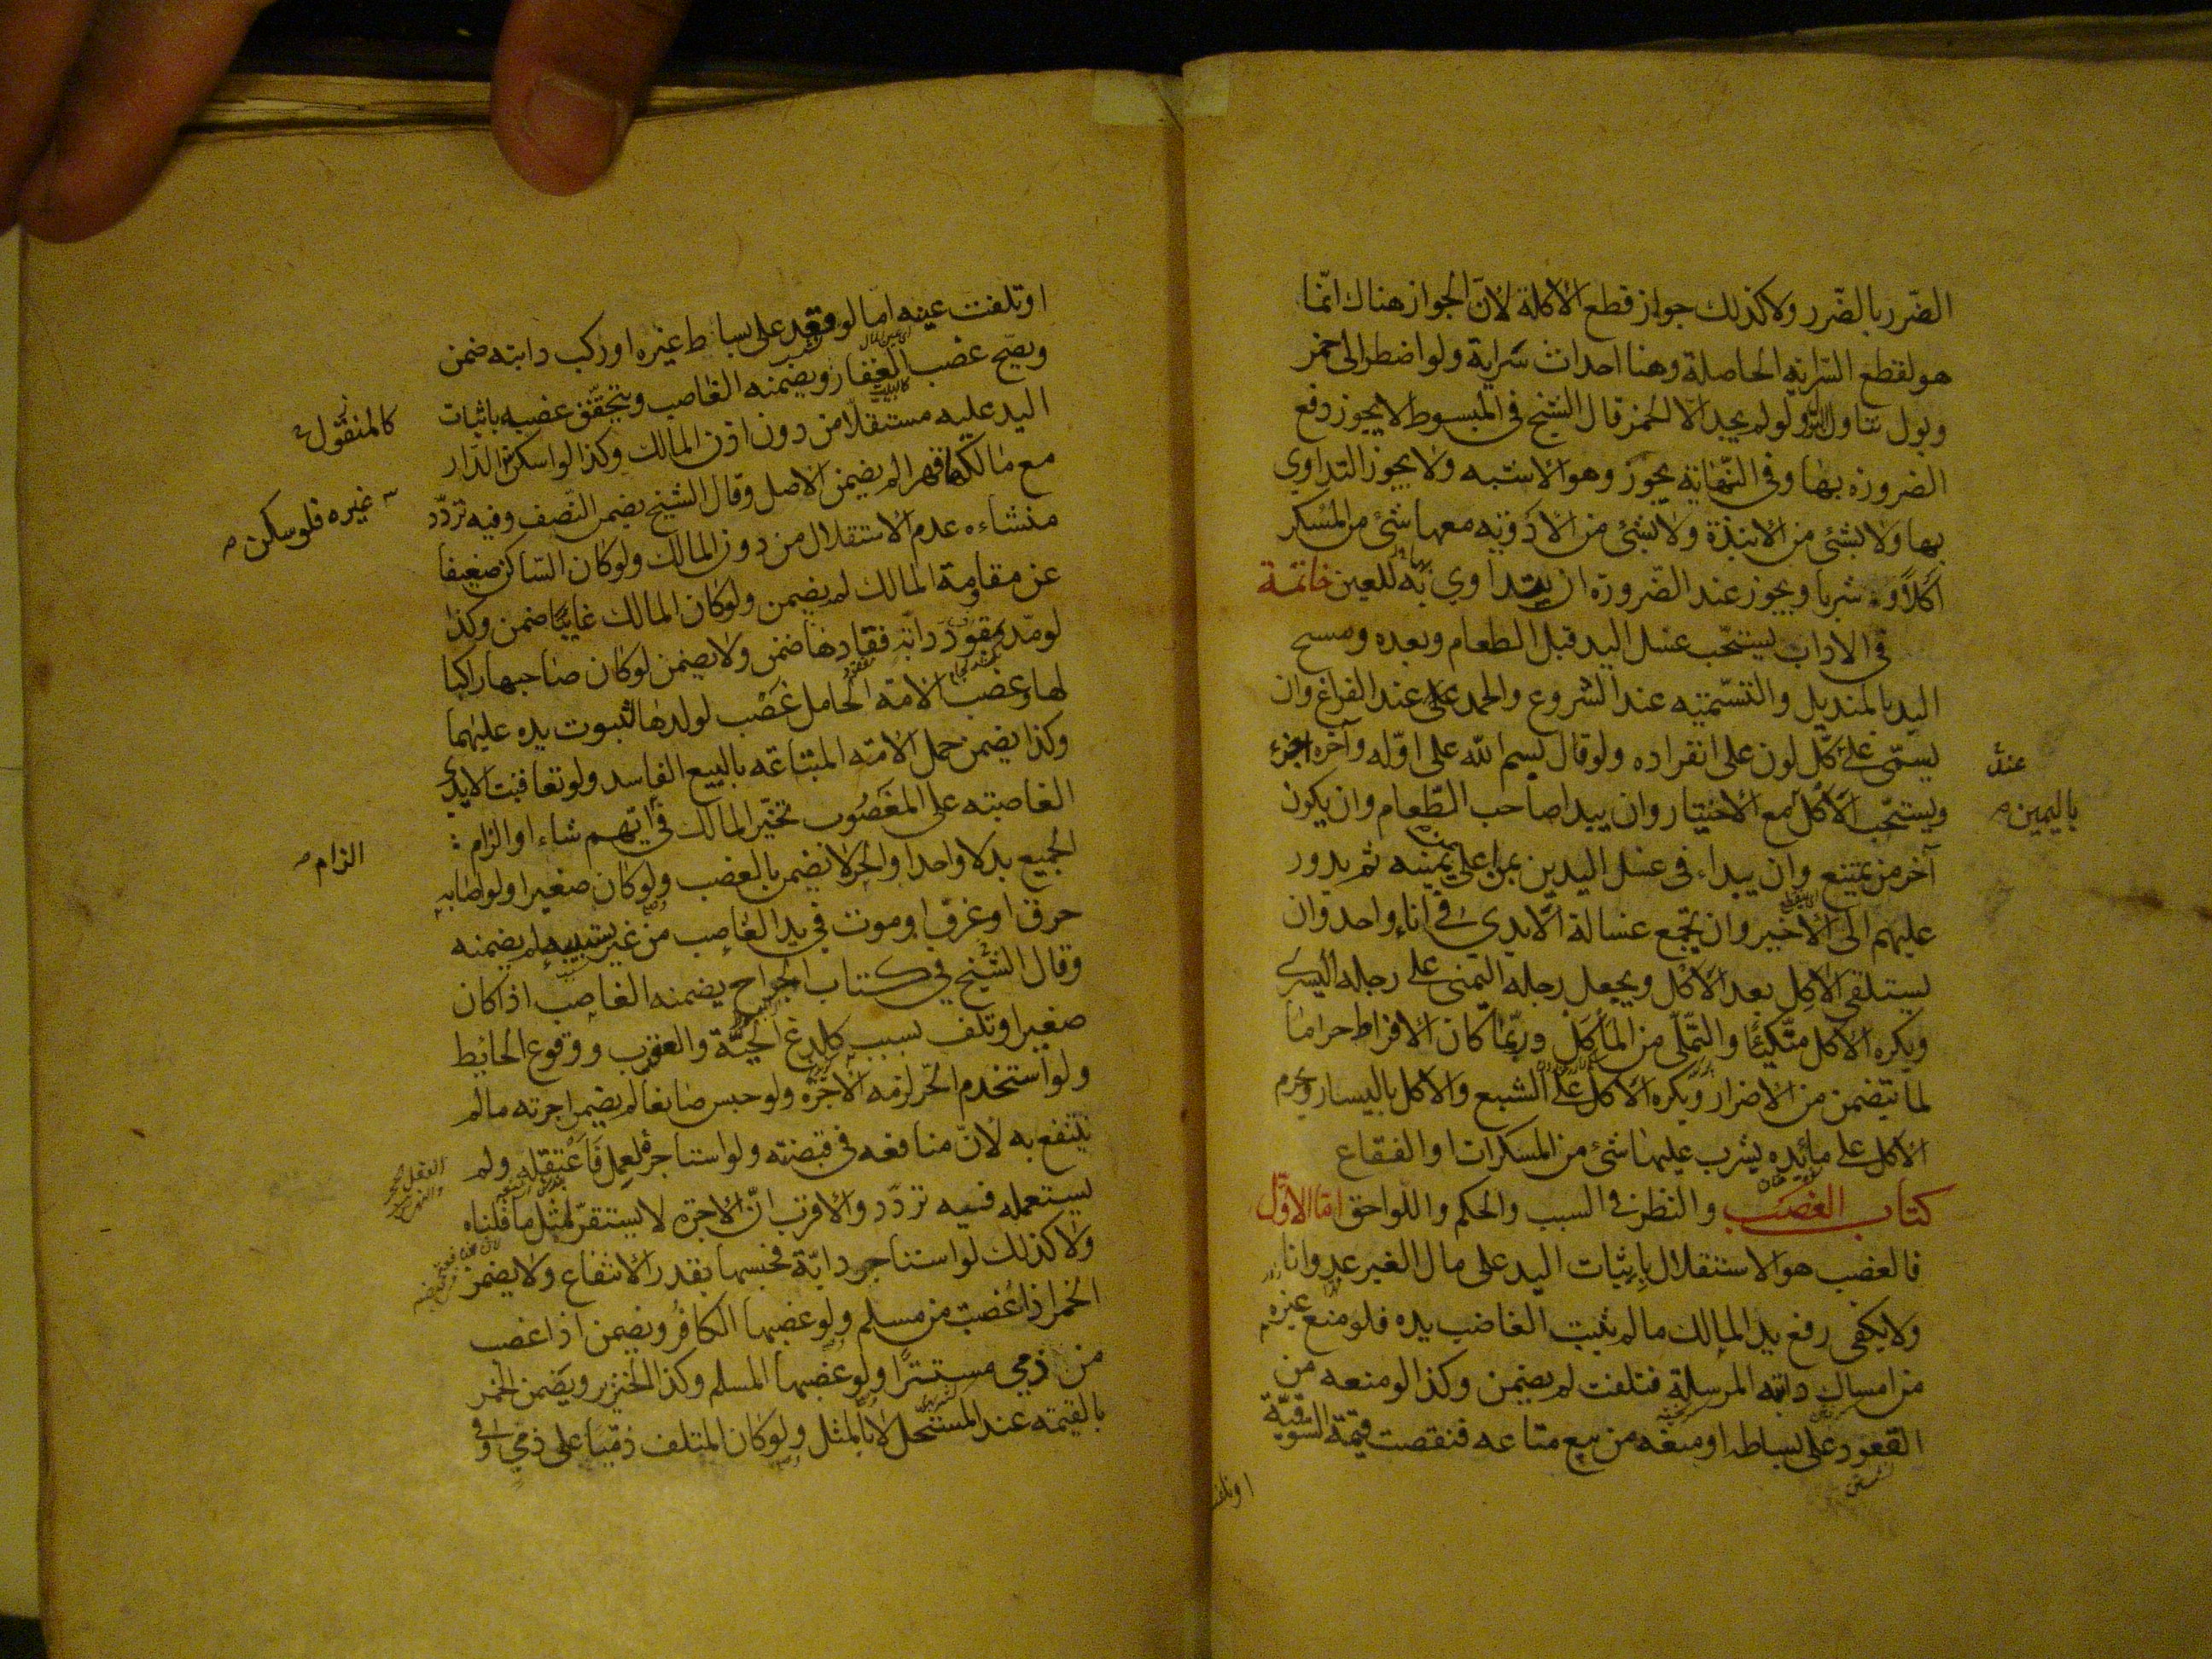 الضّرر بالضّرر ولا كذلك جواز قطع الاكلة لانّ الجواز هناك انّما
هو لقطع السّراية الحاصلة وهنا احداث سراية ولو اضطر الى خمر
وبول تناول البول ولو لم يجد الّا الخمر قال الشيخ في المبسوط لا يجوز دفع
الضرورة بها وفي النّهاية يجوز وهو الاشبه ولا يجوز التداوي
بها ولا بشئ من الانبذة ولا بشئ من الادوية معها شئ من المسكر
اكلًا و شربا ويجوز عند الضّرورة ان يتداوي به للعين خاتمة
في الاداب يستحب غسل اليد قبل الطعام وبعده ومسح
اليد بالمنديل والتسمية عند الشروع والحمد عند الفراغ وان
يسمّى على كلّ لون على انفراده ولو قال بسم الله على اوّله وآخره اجزء
عند
ويستحبّ الاكل مع الاختيار وان يبدا صاحب الطّعام وان يكون
باليمين
آخر من يمتنع وان يبداء في غسل اليدين بمن على يمينه ثم يدور
عليهم الى الاخير وان يجمع غسالة الايدي في اناء واحد وان
يستلقي الاكل بعد الاكل ويجعل رجله اليمنى على رجله اليسرى
ويكره الاكل متّكيئا والتملّى من المأكل وربّما كان الافراط حراما
لما يتضمن من الاضرار ويكره الاكل على الشبع والاكل باليسار ويحرم
الاكل على مائده يشرب عليها شئ من المسكرات او الفقاع
كتاب الغصب والنظر في السبب والحكم واللّواحق امّا الاوّل
فالغصب هو الاستقلال باثبات اليد على مال الغير عدوانا
ولا يكفى رفع يد المالك ما لم يثبت الغاصب يده فلو منع غيره
من امساك دابته المرسلة فتلفت لم يضمن وكذا لو منعه من
القعود على بساطه او منعه من بيع متاعه فنقصت قيمته السّوقيّة
او تلفت
او تلفت عينه اما لو قعد على بساط غيره او ركب دابته ضمن
ويصح غصب العقار ويضمنه الغاصب ويتحقّق غصبه باثبات
كالمنقول
اليد عليه مستقلّا من دون اذن المالك وكذا لو اسكن الدّار
غيره فلو سكن
مع مالكها قهرا لم يضمن الاصل وقال الشيخ يضمن النّصف وفيه تردّد
منشاءه عدم الاستقلال من دون المالك ولو كان السّاكن ضعيفا
عن مقاومة المالك لم يضمن ولو كان المالك غايبًا ضمن وكذا
لو مدّ بمقود دابّة فقادها ضمن ولا يضمن لو كان صاحبها راكبا
لها وغصب الامة الحامل غصب لولدها لثبوت يده عليهما
وكذا يضمن حمل الامته المبتاعة بالبيع الفاسد ولو تعاقبت الايدي
الغاصبته على المغصوب تخيّر المالك في ايّهم شاء او الزام
الزام
الجميع بدلا واحدا والحر لا يضمن بالغصب ولو كان صغيرا ولو اصابه
حرق او غرق او موت في يد الغاصب من غير بسببه لم يضمنه
وقال الشيخ في كتاب الجراح يضمنه الغاصب اذا كان
صغيرا وتلف بسبب كلدغ الحيّة والعقرب ووقوع الحايط
ولو استخدم الحر لزمه الاجرة ولو حبس صانعا لم يضمن اجرته ما لم
ينتفع به لانّ منافعه في قبضته ولو استاجره لعمل فاعتقله ولم
يستعمله فيه تردّد والاقرب انّ الاجرة لا يستقرّ لمثل ما قلناه
ولا كذلك لو استاجر دابّة فحبسها بقدر الانتفاع ولا يضمن
الخمر اذا غصبت من مسلم ولو غصبها الكافر ويضمن اذا غصب
من ذمي مستترًا ولو غصبها المسلم وكذا الخنزير ويضمن الخمر
بالقيمة عند المستحل لا بالمثل ولو كان المتلف ذمّيا على ذمّي وفي